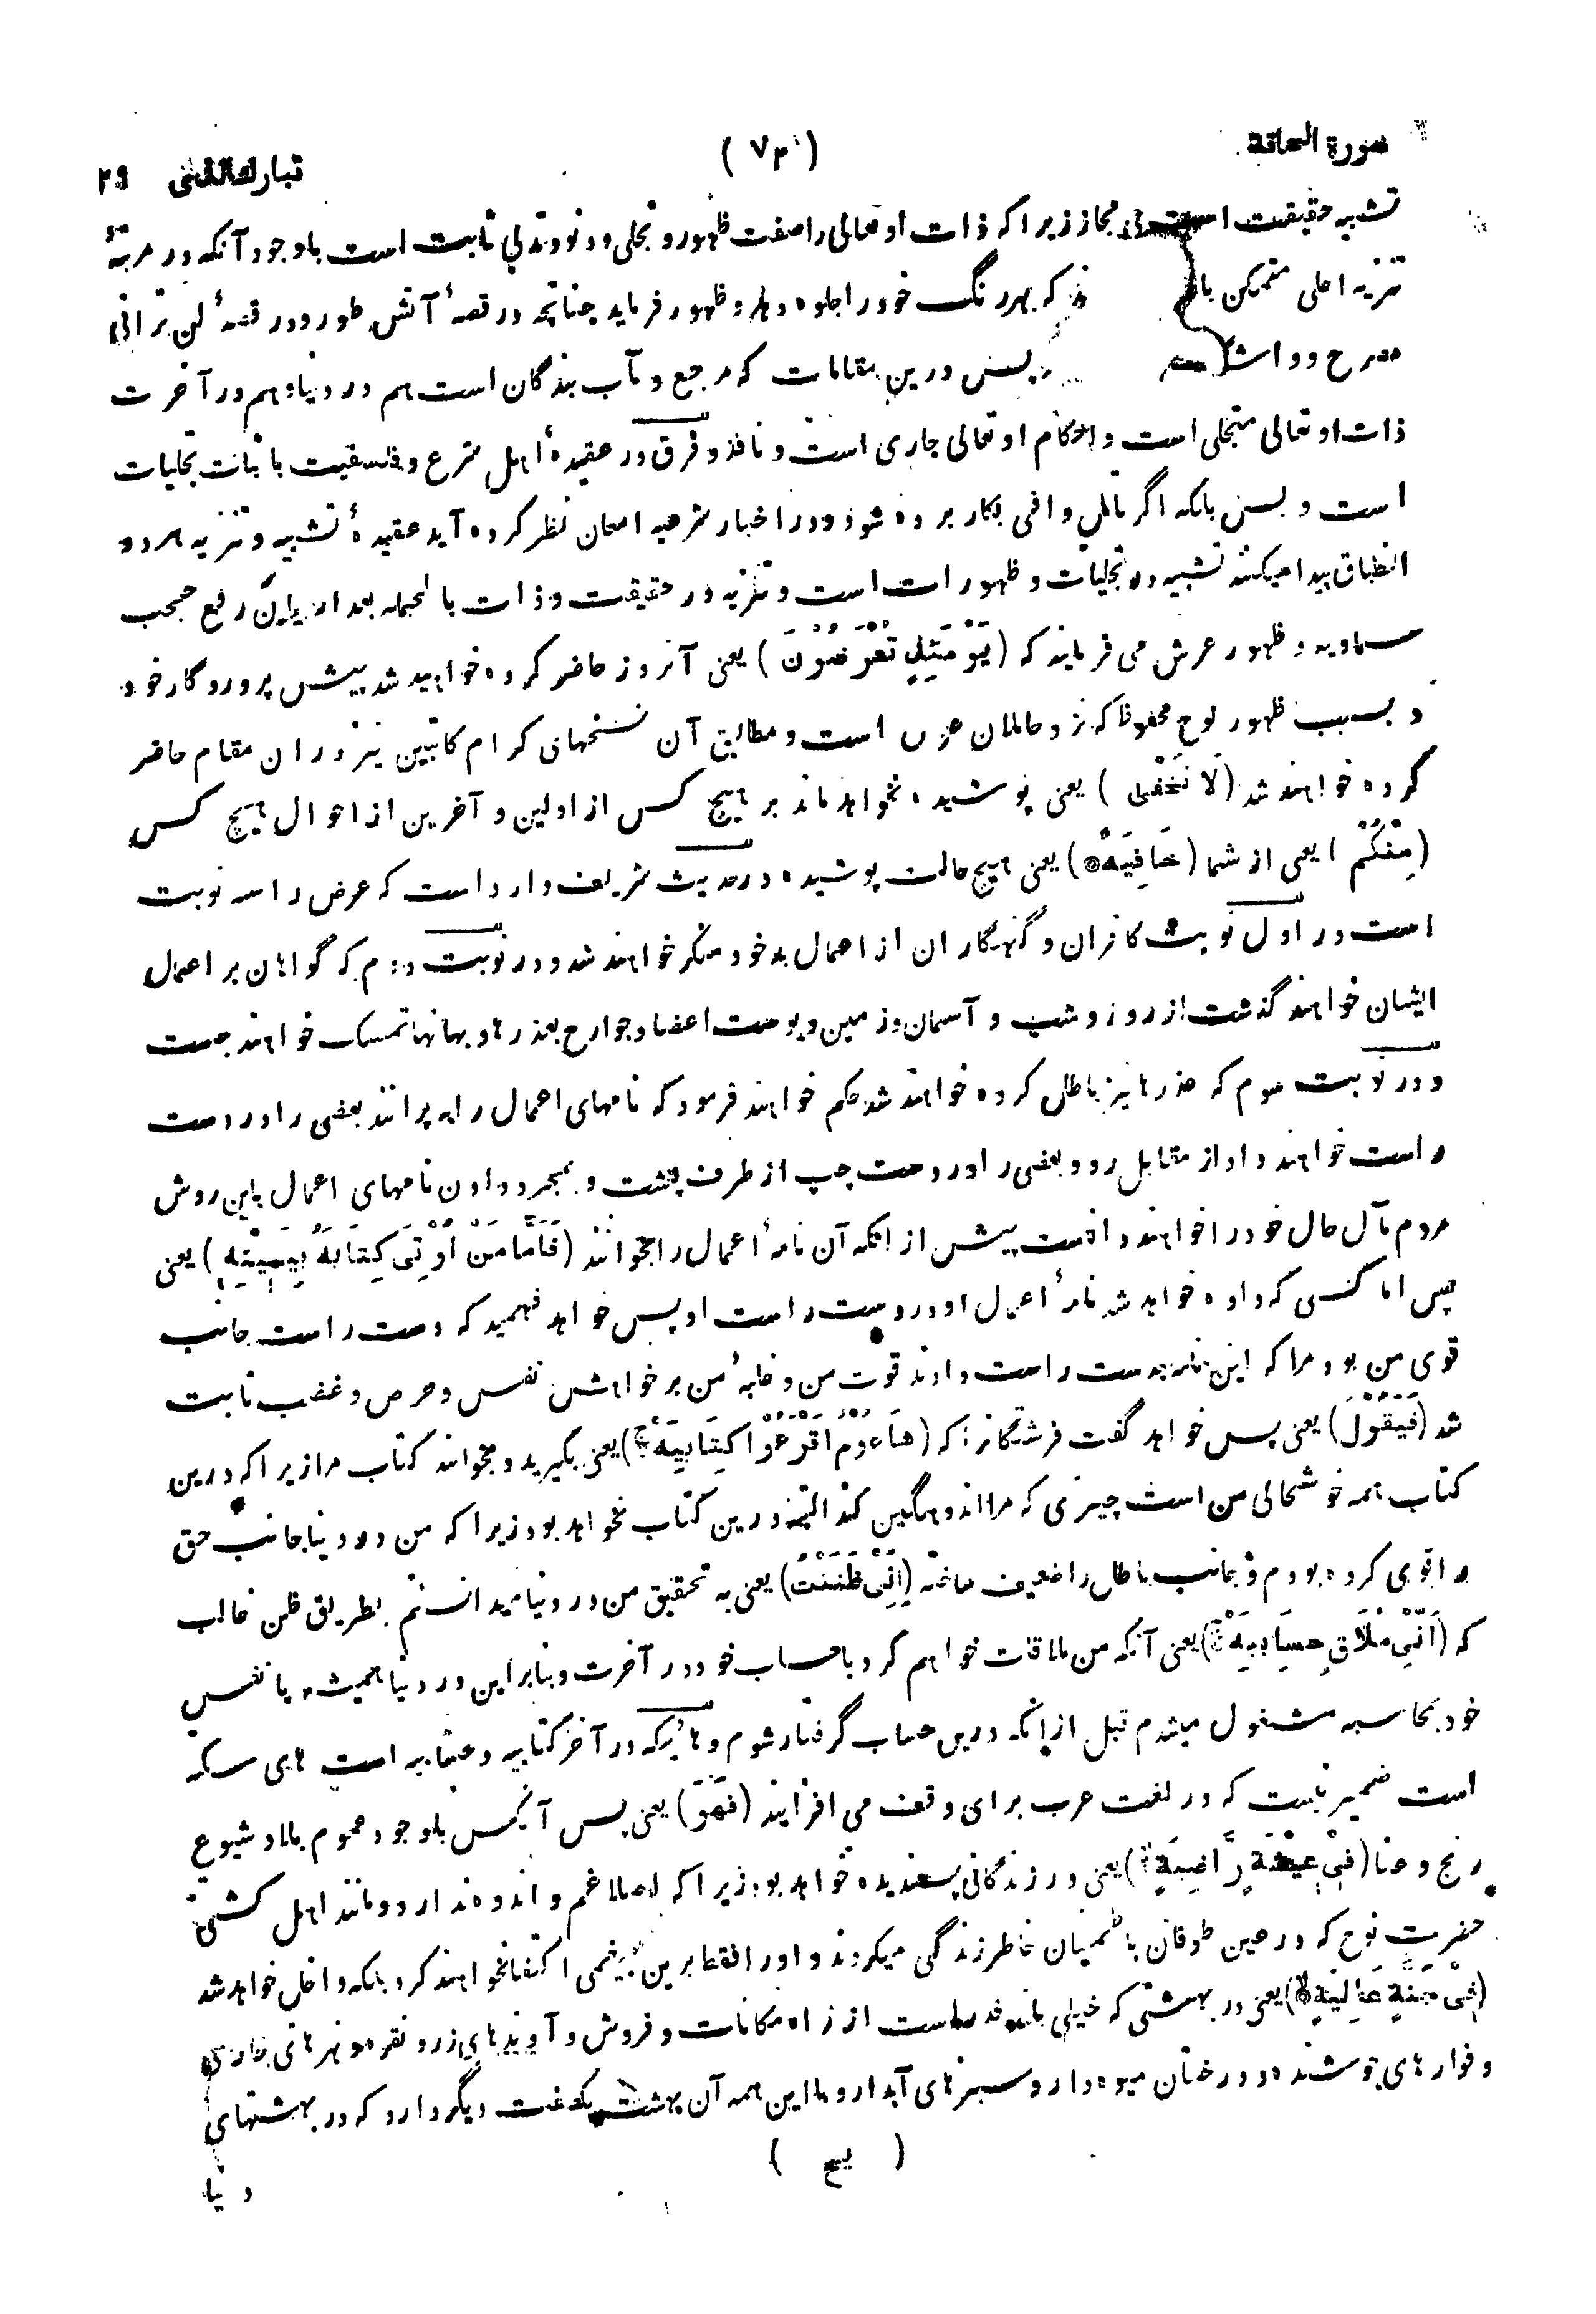 سورة الحاقة (٧٣) تبارك الذی ٢٩
تشبیه حقیقت است نه مجاز زیرا که ذات او تعالی را صفت ظهور و تجلی و دنو و تدلی ثابت است باوجود آنکه در مرتبهٔ
تنزیه اعلی متمکن که بهر رنگ خود را جلوه دهد و ظهور فرماید چنانچه در قصهٔ آتش طور و در قصهٔ لن ترانی
مصرح و پس درین مقامات که مرجع و مآب بندگان است هم در دنیا و هم در آخرت
ذات او تعالی متجلی است و احکام او تعالی جاری است و نافذ و فرق در عقیدهٔ اهل شرع و فلسفیت باثبات تجلیات
است و بس بلکه اگر تامل وافی بکار برده شود و در اخبار شرعیه امعان نظر کرده آید عقیدهٔ تشبیه و تنزیه هر دو
انطباق پیدا میکنند تشبیه در تجلیات و ظهورات است و تنزیه در حقیقت و ذات بالجمله بعد از بیان رفع حجب
سماویه و ظهور عرش می فرمایند که (یَوْمَئِذٍ تُعْرَضُوْنَ) یعنی آنروز حاضر کرده خواهید شد پیش پروردگار خود
و بسبب ظهور لوح محفوظ که نزد حاملان عرش است و مطابق آن نسخهای کرام کاتبین نیز دران مقام حاضر
کرده خواهند شد (لَا تَخْفٰی) یعنی پوشیده نخواهد ماند بر هیچ کس از اولین و آخرین از احوال هیچ کس
(مِنْکُمْ) یعنی از شما (خَافِیَةٌ) یعنی هیچ حالت پوشیده در حدیث شریف وارد است که عرض را سه نوبت
است در اول نوبت کافران و گنهگاران از اعمال بد خود منکر خواهند شد و در نوبت دوم که گواهان بر اعمال
ایشان خواهند گذشت از روز و شب و آسمان و زمین و پوست اعضا و جوارح بعذرها و بهانها تمسک خواهند جست
و در نوبت سوم که عذرها نیز باطل کرده خواهند شد حکم خواهند فرمود که نامهای اعمال را بپرانند بعضی را در دست
راست خواهند داد از مقابل رو و بعضی را در دست چپ از طرف پشت و بمجرد دادن نامهای اعمال باین روش
مردم مآل حال خود را خواهند دانست پیش از انکه آن نامهٔ اعمال را بخوانند (فَاَمَّا مَنْ اُوْتِیَ کِتَابَهٗ بِیَمِیْنِهٖ) یعنی
پس اما کسی که داده خواهد شد نامهٔ اعمال او در دست راست او پس خواهد فهمید که دست راست جانب
قوی من بود مرا که این نامه بدست راست دادند قوت من و غلبهٔ من بر خواهش نفس و حرص و غضب ثابت
شد (فَیَقُوْلُ) یعنی پس خواهد گفت فرشتگانرا که (هَاؤُمُ اقْرَءُوْا کِتَابِیَهْ) یعنی بگیرید و بخوانند کتاب مرا زیرا که درین
کتاب همه خوشحالی من است چیزی که مرا اندوهگین کند البته درین کتاب نخواهد بود زیرا که من در دنیا جانب حق
را قوی کرده بودم و جانب باطل را ضعیف ساخته (اِنِّیْ ظَنَنْتُ) یعنی به تحقیق من در دنیا میدانستم بطریق ظن غالب
که (اَنِّیْ مُلَاقٍ حِسَابِیَهْ) یعنی آنکه من ملاقات خواهم کرد با حساب خود در آخرت و بنابر این در دنیا همیشه با نفس
خود بمحاسبه مشغول میشدم قبل از انکه درین حساب گرفتار شوم و هائیکه در آخر کتابیه و حسابیه است های سکته
است ضمیر نیست که در لغت عرب برای وقف می افزایند (فَهُوَ) یعنی پس آنکس باوجود عموم بلا و شیوع
رنج و عنا (فِیْ عِیْشَةٍ رَّاضِیَةٍ) یعنی در زندگانی پسندیده خواهد بود زیرا که اصلا غم و اندوه ندارد و مانند اهل کشتی
حضرت نوح که در عین طوفان باطمینان خاطر زندگی میکردند و او را فقط برین بیغمی اکتفا نخواهند کرد بلکه داخل خواهد شد
(فِیْ جَنَّةٍ عَالِیَةٍ) یعنی در بهشتی که خیلی بلند قدر است از راه مکانات و فروش و آوندهای زر و نقره و نهرهای جاری
و فوارهای جوشنده و درختان میوه دار و سبزهای آبدار و با این همه آن بهشت یک صفت دیگر دارد که در بهشتهای
دنیا